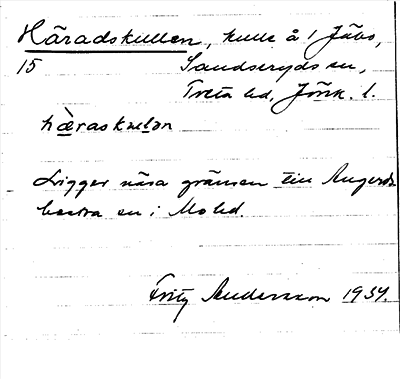 Häradskullen, kulle å 1 Jäbo,
15 Sandseryds sn,
Tveta hd, Jönk. l.
hæ̀raskulən
Ligger nära gränsen till Angerds-
hestra sn i Mo hd.
Fritz Andersson 1934.